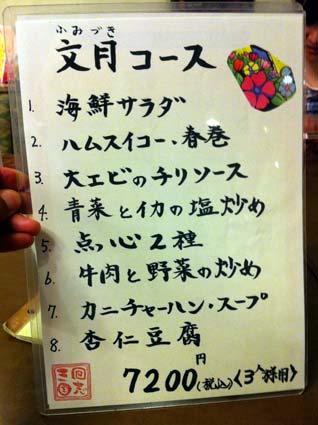 ふみづき
文月コース
1. 海鮮サラダ
2. ハムスイコー、春巻
3. 大エビのチリソース
4. 青菜とイカの塩炒め
5. 点心2種
6. 牛肉と野菜の炒め
7. カニチャーハン・スープ
8. 杏仁豆腐
7200円(税込)〈3人様用〉